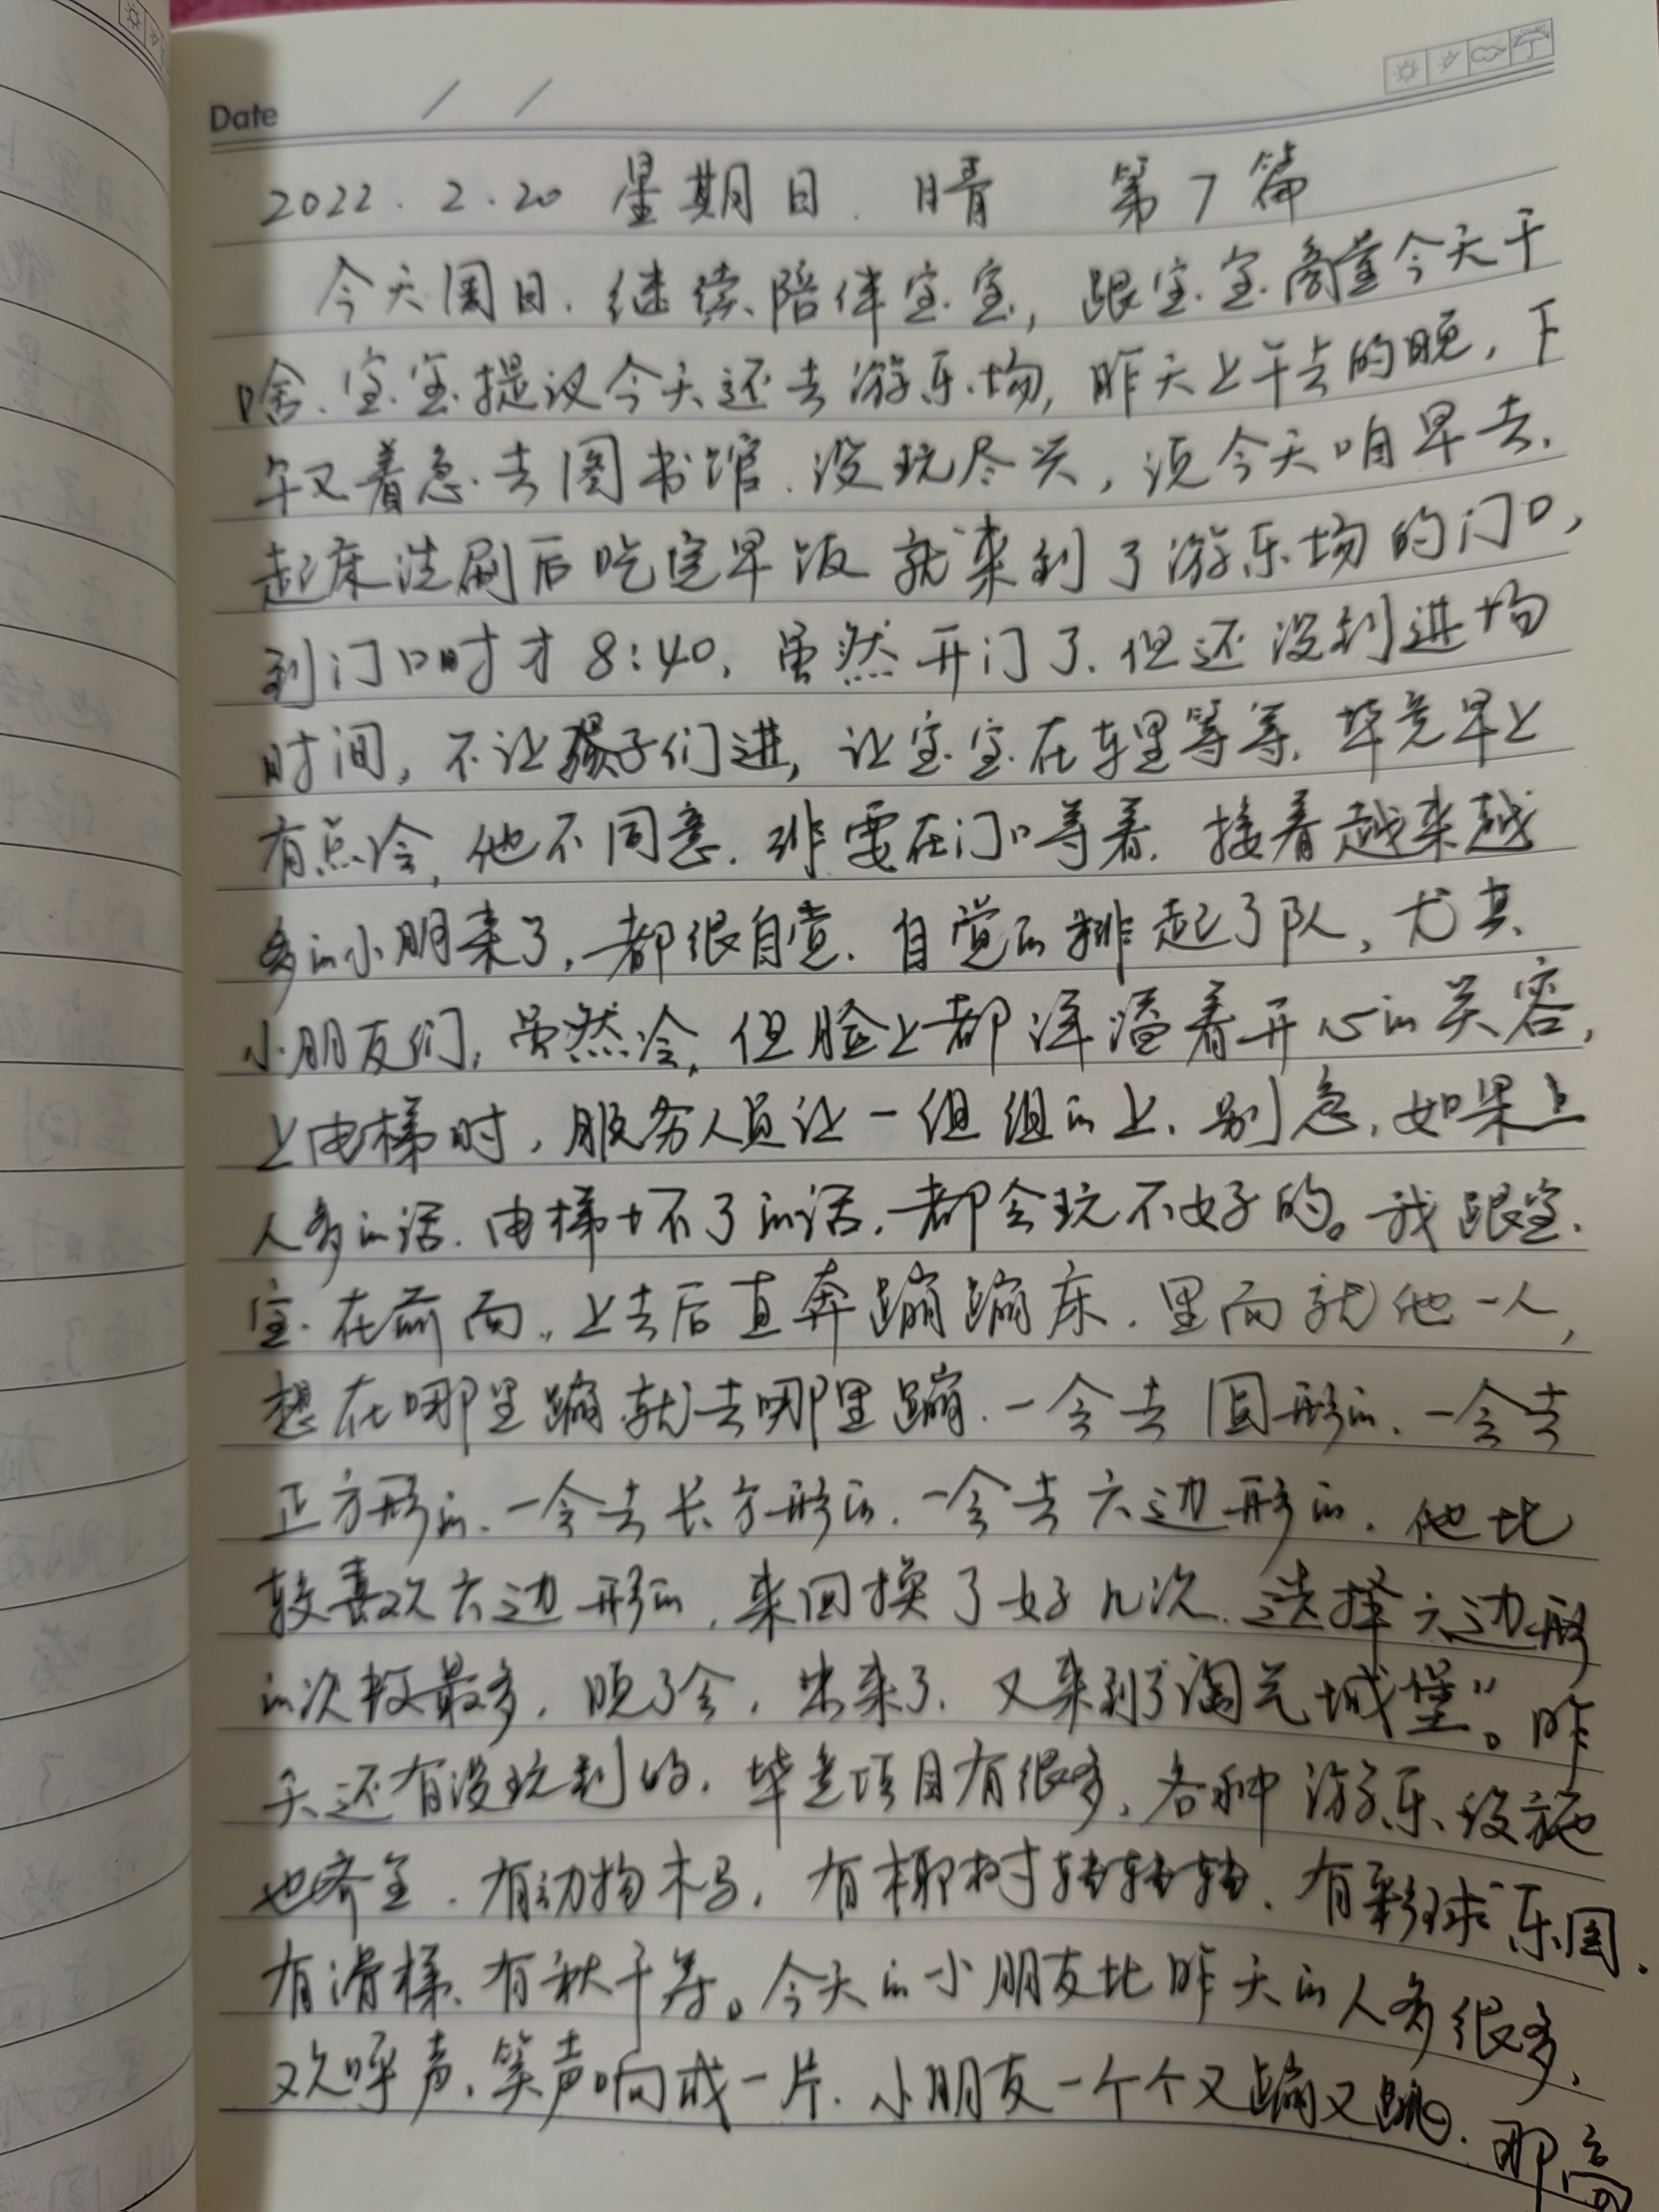 Date / /
2022.2.20 星期日. 晴 第7篇
今天周日.继续陪伴宝宝,跟宝宝商量今天干
啥.宝宝提议今天还去游乐场,昨天上午去的晚,下
午又着急去图书馆.没玩尽兴,说今天咱早去.
起床洗刷后吃完早饭就来到了游乐场的门口,
到门口时才8:40,虽然开门了.但还没到进场
时间,不让孩子们进,让宝宝在车里等等.毕竟早上
有点冷,他不同意.非要在门口等着.接着越来越
多的小朋来了,都很自觉.自觉的排起了队,尤其
小朋友们,虽然冷,但脸上都洋溢着开心的笑容,
上电梯时,服务人员让一组组的上.别急,如果上
人多的话.电梯卡不了的话.都会玩不好的。我跟宝
宝在前面,上去后直奔蹦蹦床.里面就他一人,
想在哪里蹦就去哪里蹦.一会去圆形的.一会去
正方形的.一会去长方形的.一会去六边形的.他比
较喜欢六边形的,来回换了好几次.选择六边形
的次数最多,晚了会,出来了.又来到了淘气城堡”。昨
天还有没玩到的.毕竟项目有很多,各种游乐设施
也齐全.有动物木马,有椰树转转转.有彩球乐园.
有滑梯.有秋千等。今天的小朋友比昨天的人多很多,
欢呼声.笑声响成一片.小朋友一个个又蹦又跳.那高